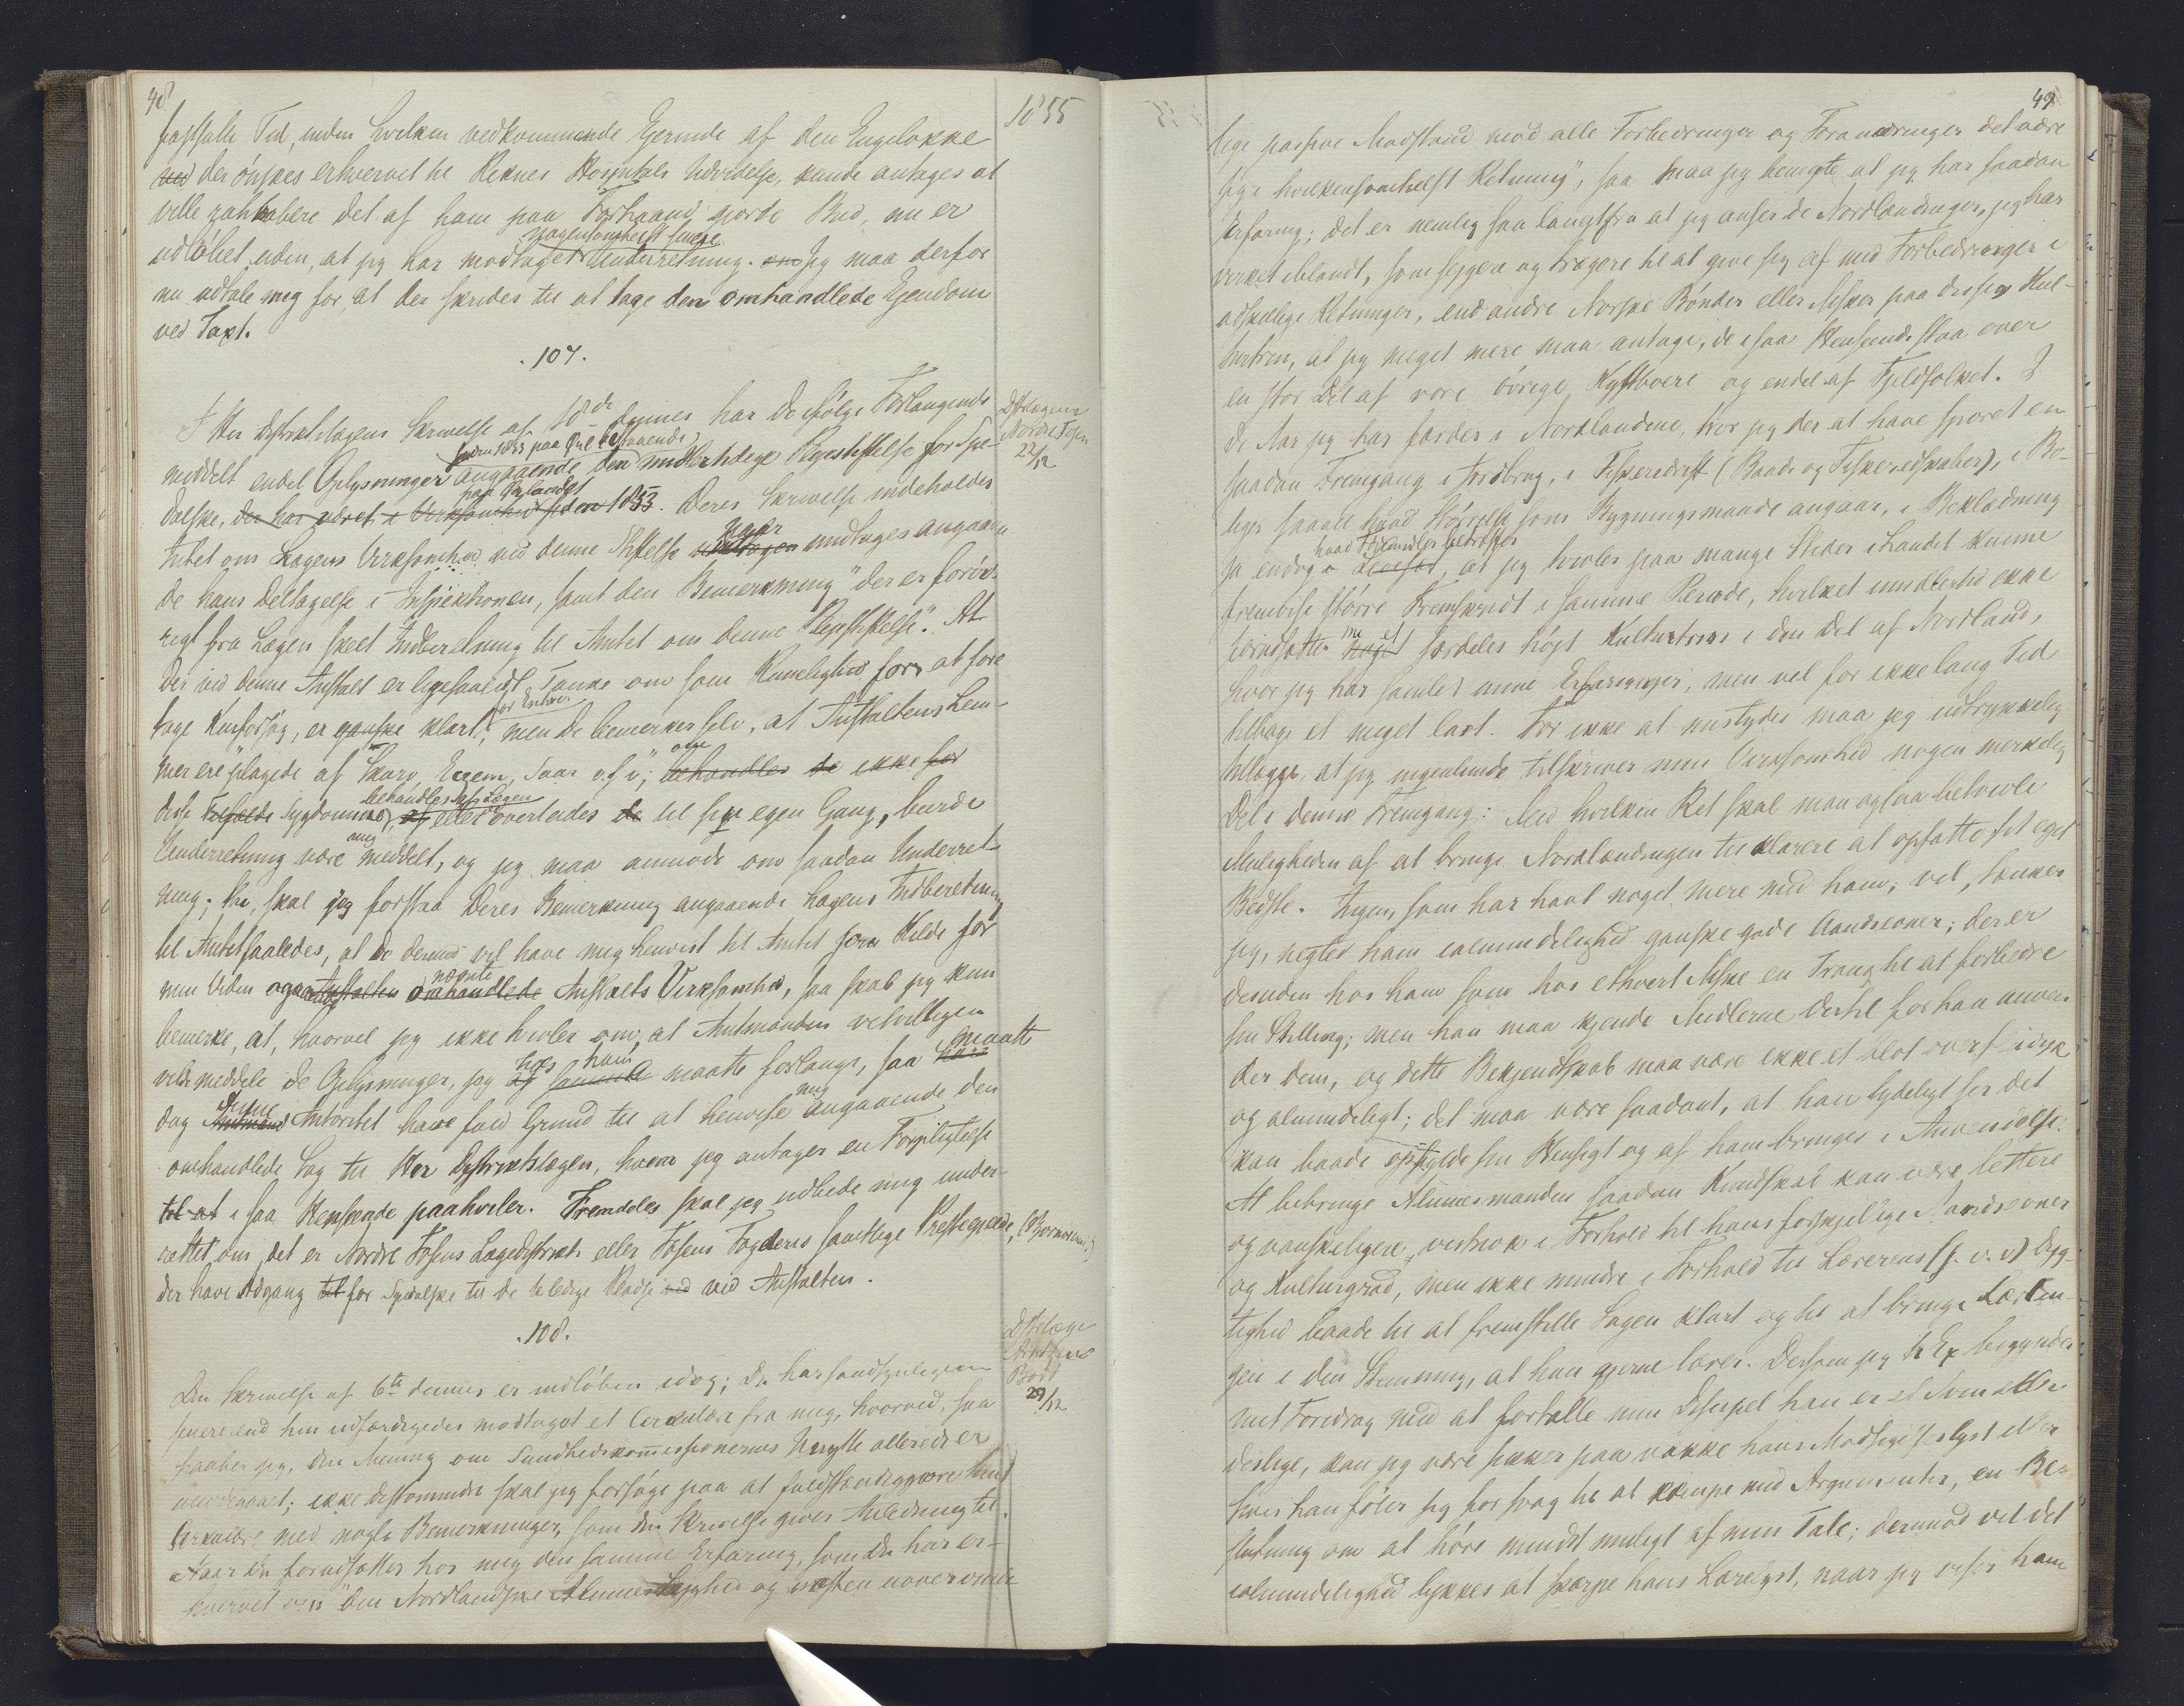 48
1855
fastsatte Tid, inden hvilken vedkommende Ejerinde af den Engeløkke
ved der ønskes erhvervet til Reknes Hospitals Udvidelse, kunde antages at
ville rathabere det af ham paa Forhaand gjorte Bud, nu er
nogensomhelst senere
udløbet uden, at jeg har modtaget Underretning. om Jeg maa derfor
nu udtale mig for, at der skrides til at tage den omhandlede Ejendom
ved Taxt.
. 107.
Dstrlægen
Nordre Fosen
22/12
I Hr Distriktslægens Skrivelse af 18de dennes har De ifølge Forlangende
siden 1853 paa bestaaende
meddelt endel Oplysninger angaaende den midlertidige Plejestiftelse for Spe-
paa Ørlandet
dalske, der har været i Virksomhed siden 1853. Deres Skrivelse indeholder
Intet om Lægens Virksomhed ved denne Stiftelse undtages angaaen
de hans Deltagelse i Inspektionen, samt den Bemerkning "der er forøv-
rigt fra Lægen skeet Indberetning til Amtet om denne Plejestiftelse". At
der ved denne Anstalt er ligesaalidt Tanke om som Rimelighed for, at fore
for Enhver
tage Kurforsøg, er ganske klart, men De bemerker selv, at Anstaltens Lem-
mer ere "plagede af Skurv, Eczem, Saar o.s.v."; om behandles de ikke for
behandles af Lægen
disse Tilfælde Sygdomme, af eller overlades de til sin egen Gang, burde
mig
Underretning være meddelt, og jeg maa anmode om saadan Underret
ning; thi, skal jeg forstaa Deres Bemerkning angaaende Lægens Indberetning
til Amtet saaledes, at De dermed vil have mig henvist til Amtet som Kilde for
nævnte
min Viden om Anstalten omhandlede Anstalts Virksomhed, saa skal jeg kun
bemerke, at, hvorvel jeg ikke tvivler om, at Amtmanden velvilligen
hos ham maatte
vilde meddele de Oplysninger, jeg af samme maatte forlange, saa han
denne mig
dog Amtmand Autoritet have fuld Grund til at henvise angaaende den
omhandlede Sag til Hr Distriktslægen, hvem jeg antager en Forpligtelse
til at i saa Henseende paahviler. Fremdeles skal jeg udbede mig under-
rettet om, det er Nordre Fosens Lægedistrikt eller Fosens Fogderis samtlige Præstegjelde, (Bjørnør incl.)
der have Adgang til for Spedalske til de ledige Pladse ved ved Anstalten.
. 108.
Dstrlæge
Bodø
29/12
Din Skrivelse af 6te dennes er indløben idag; Du har sandsynligvis
senere end hin udfærdigedes modtaget et Circulære fra mig, hvorved, saa
haaber jeg, din Mening om Sundhedskommissionernes Unytte allerede er
modereret; ikke destomindre skal jeg forsøge paa at fuldstændiggjøre hint
Cirkulære med nogle Bemerkninger, som din Skrivelse giver Anledning til.
Naar Du forudsætter hos mig den samme Erfaring, som Du har er-
hvervet om "den Nordlandske Almues Sløvhed og næsten uovervinde
49
lige passive Modstand mod alle Forbedringer og Forandringer det være
sig i hvilkensomhelst Retning", saa maa jeg benegte at jeg har saadan
Erfaring; det er nemlig saa langtfra at jeg anser de Nordlændinger, jeg har
virket iblandt, som sejgere og tregere til at give sig af med Forbedringer i
adskillige Retninger, end andre Norske Bønder eller Fisker paa disses Kul-
turtrin, at jeg meget mere maa antage, de i saa Henseende staa over
en stor Del af vore øvrige Kystboere og endel af Fjeldfolket. I
de Aar jeg har færdes i Nordlandene, tror jeg der at have sporet en
saadan Fremgang i Jordbrug, i Fiskeredrift (Baade og Fiskeredskaber), i Bo-
liger saavel hvad Størrelse som Bygningsmaade angaar, i Beklædning
hvad betræffer
ja endog i Levesæt, at jeg tvivler paa mange Steder i Landet kunne
fremvise større Fremskridt i samme Periode, hvilket imidlertid ikke
nu et
forudsætter noget særdeles højt Kulturtrin i den Del af Nordland,
hvor jeg har samlet mine Erfaringer, men vel for ikke lang Tid
tilbage et meget lavt. For ikke at mistydes maa jeg udtrykkelig
tillægge, at jeg ingenlunde tilskriver min Virksomhed nogen merkelig
Del i denne Fremgang: Med hvilken Ret skal man ogsaa betvivle
Muligheden af at bringe Nordlændingen til klarere at opfatte sit eget
Bedste. Ingen, som har havt noget mere med ham, vel, tænker
jeg, negter ham i almindelighed ganske gode Aandsevner; der er
desuden hos ham som hos ethvert Mske en Trang til at forbedre
sin Stilling; men han maa kjende Midlerne dertil før han anven
der dem, og dette Bekjendtskab maa være ikke et blot overfladisk
og almindeligt; det maa være saadant, at han tydeligt ser det
kan baade opfylde sin Hensigt og af ham bringes i Anvendelse.
At bibringe Almuesmanden saadan Kundskab kan være lettere
og vanskeligere, vistnok i Forhold til hans forskjellige Aandsevner
og Kulturgrad, men ikke mindre i Forhold til Lærerens (s. v. v.) Dyg-
tighed baade til at fremstille Sagen klart og til at bringe Lærlin-
gen i den Stemning, at han gjerne lærer. Dersom jeg t. Ex. begynder
mit Foredrag med at fortælle min Discipel han er et Svin eller
deslige, kan jeg være sikker paa vække hans Modsigelseslyst eller
hvis han føler sig for svag til at kæmpe med Argumenter, en Be-
slutning om at høre mindst muligt af min Tale; derimod vil det
i almindelighed lykkes at skærpe hans Lærelyst, naar jeg viser ham